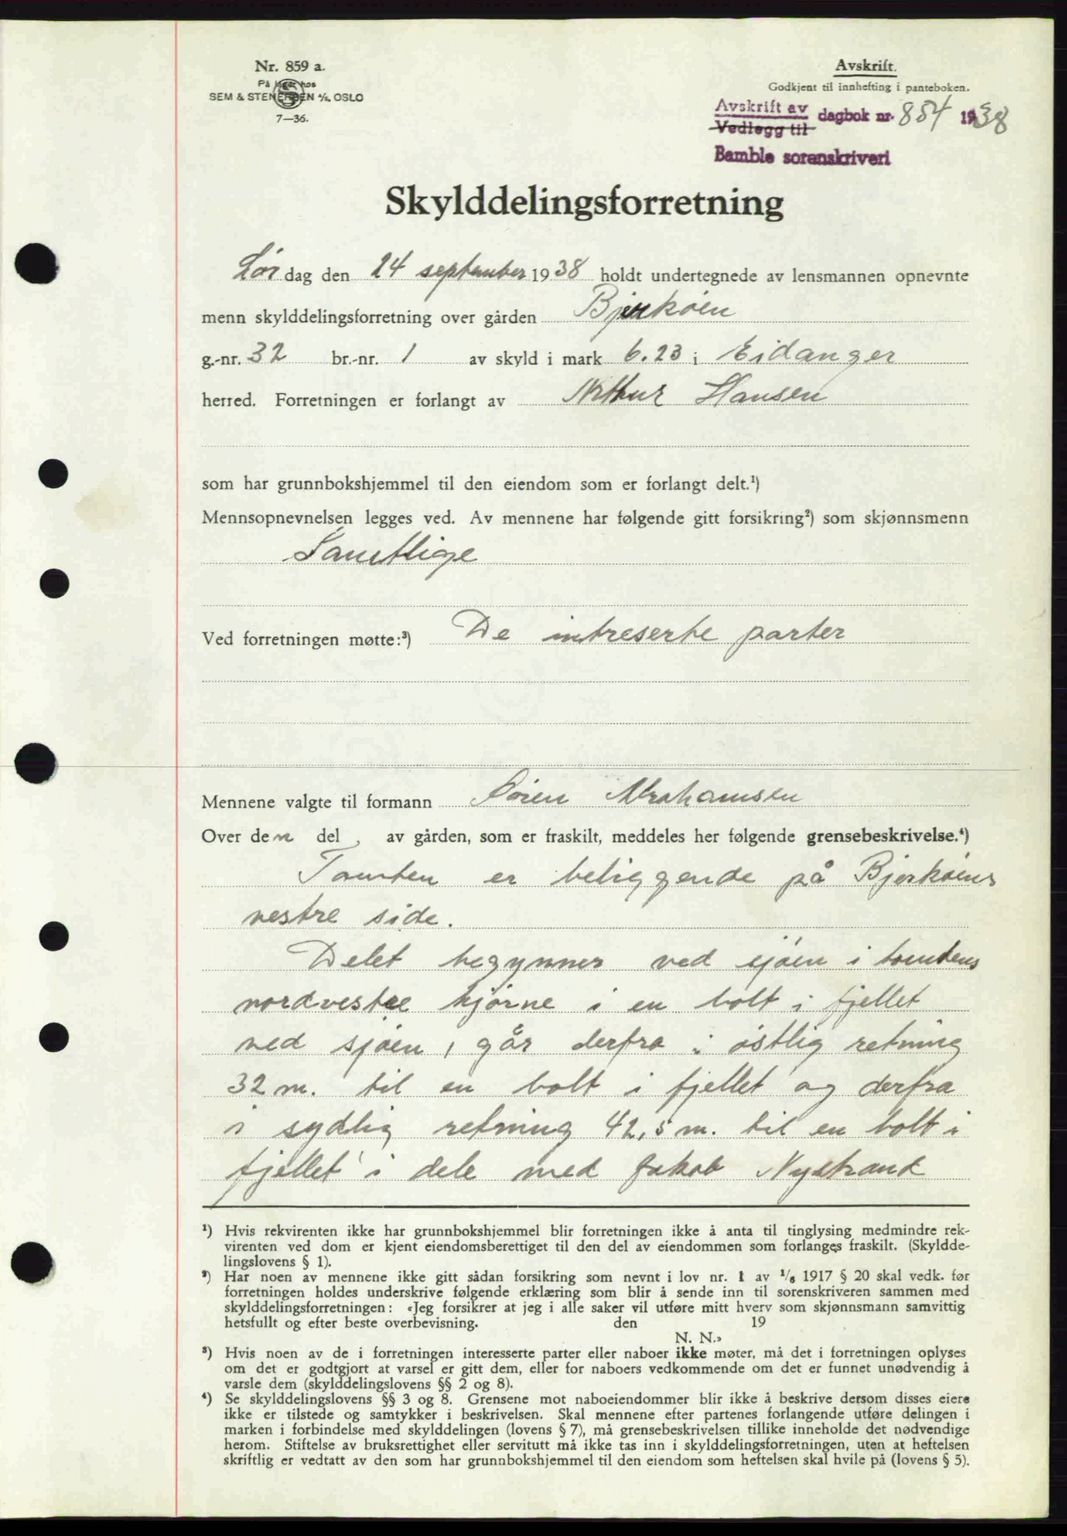 Nr. 859 a.
På lager hos
SEM & STENERSEN A/S. OSLO
7—36.
Avskrift.
Godkjent til innhefting i panteboken.
Avskrift av
Vedlegg til
dagbok nr. 854 1938
Bamble sorenskriveri
Skylddelingsforretning
Lørdag den 24 september 1938 holdt undertegnede av lensmannen opnevnte
menn skylddelingsforretning over gården Bjerkøien
g.-nr. 32 br.-nr. 1 av skyld i mark 6.23 i Eidanger
herred. Forretningen er forlangt av Arthur Hansen
som har grunnbokshjemmel til den eiendom som er forlangt delt.¹)
Mennsopnevnelsen legges ved. Av mennene har følgende gitt forsikring²) som skjønnsmenn
Samtlige
Ved forretningen møtte:³) De intreserte parter
Mennene valgte til formann Søren Abrahamsen
Over den del av gården, som er fraskilt, meddeles her følgende grensebeskrivelse.⁴)
Tomten er beliggende på Bjerkøiens
vestre side.
Delet begynner ved sjøen i tomtens
nordvestre hjørne i en bolt i fjellet
ved sjøen, går derfra i østlig retning
32 m. til en bolt i fjellet og derfra
i sydlig retning 42,5 m. til en bolt i
fjellet i dele med Jakob Nystrand
¹) Hvis rekvirenten ikke har grunnbokshjemmel blir forretningen ikke å anta til tinglysing medmindre rek-
virenten ved dom er kjent eiendomsberettiget til den del av eiendommen som forlanges fraskilt. (Skyldde-
lingslovens § 1).
²) Har noen av mennene ikke gitt sådan forsikring som nevnt i lov nr. 1 av ¹/₆ 1917 § 20 skal vedk. før
forretningen holdes underskrive følgende erklæring som blir å sende inn til sorenskriveren sammen med
skylddelingsforretningen: «Jeg forsikrer at jeg i alle saker vil utføre mitt hverv som skjønnsmann samvittig
hetsfullt og efter beste overbevisning. den 19
N. N.»
³) Hvis noen av de i forretningen interesserte parter eller naboer ikke møter, må det i forretningen oplyses
om det er godtgjort at varsel er gitt dem, eller for naboers vedkommende om det er funnet unødvendig å
varsle dem (skylddelingslovens §§ 2 og 8).
⁴) Se skylddelingslovens §§ 3 og 8. Grensene mot naboeiendommer blir ikke å beskrive dersom disses eiere
ikke er tilstede og samtykker i beskrivelsen. Skal mennene efter partenes forlangende utføre delingen i
marken i forbindelse med skylddelingen (lovens § 7), må grensebeskrivelsen tillike inneholde det nødvendige
herom. Stiftelse av bruksrettighet eller servitutt må ikke tas inn i skylddelingsforretningen, uten at heftelsen
skriftlig er vedtatt av den som har grunnbokshjemmel til den eiendom som heftelsen skal hvile på (lovens § 5).